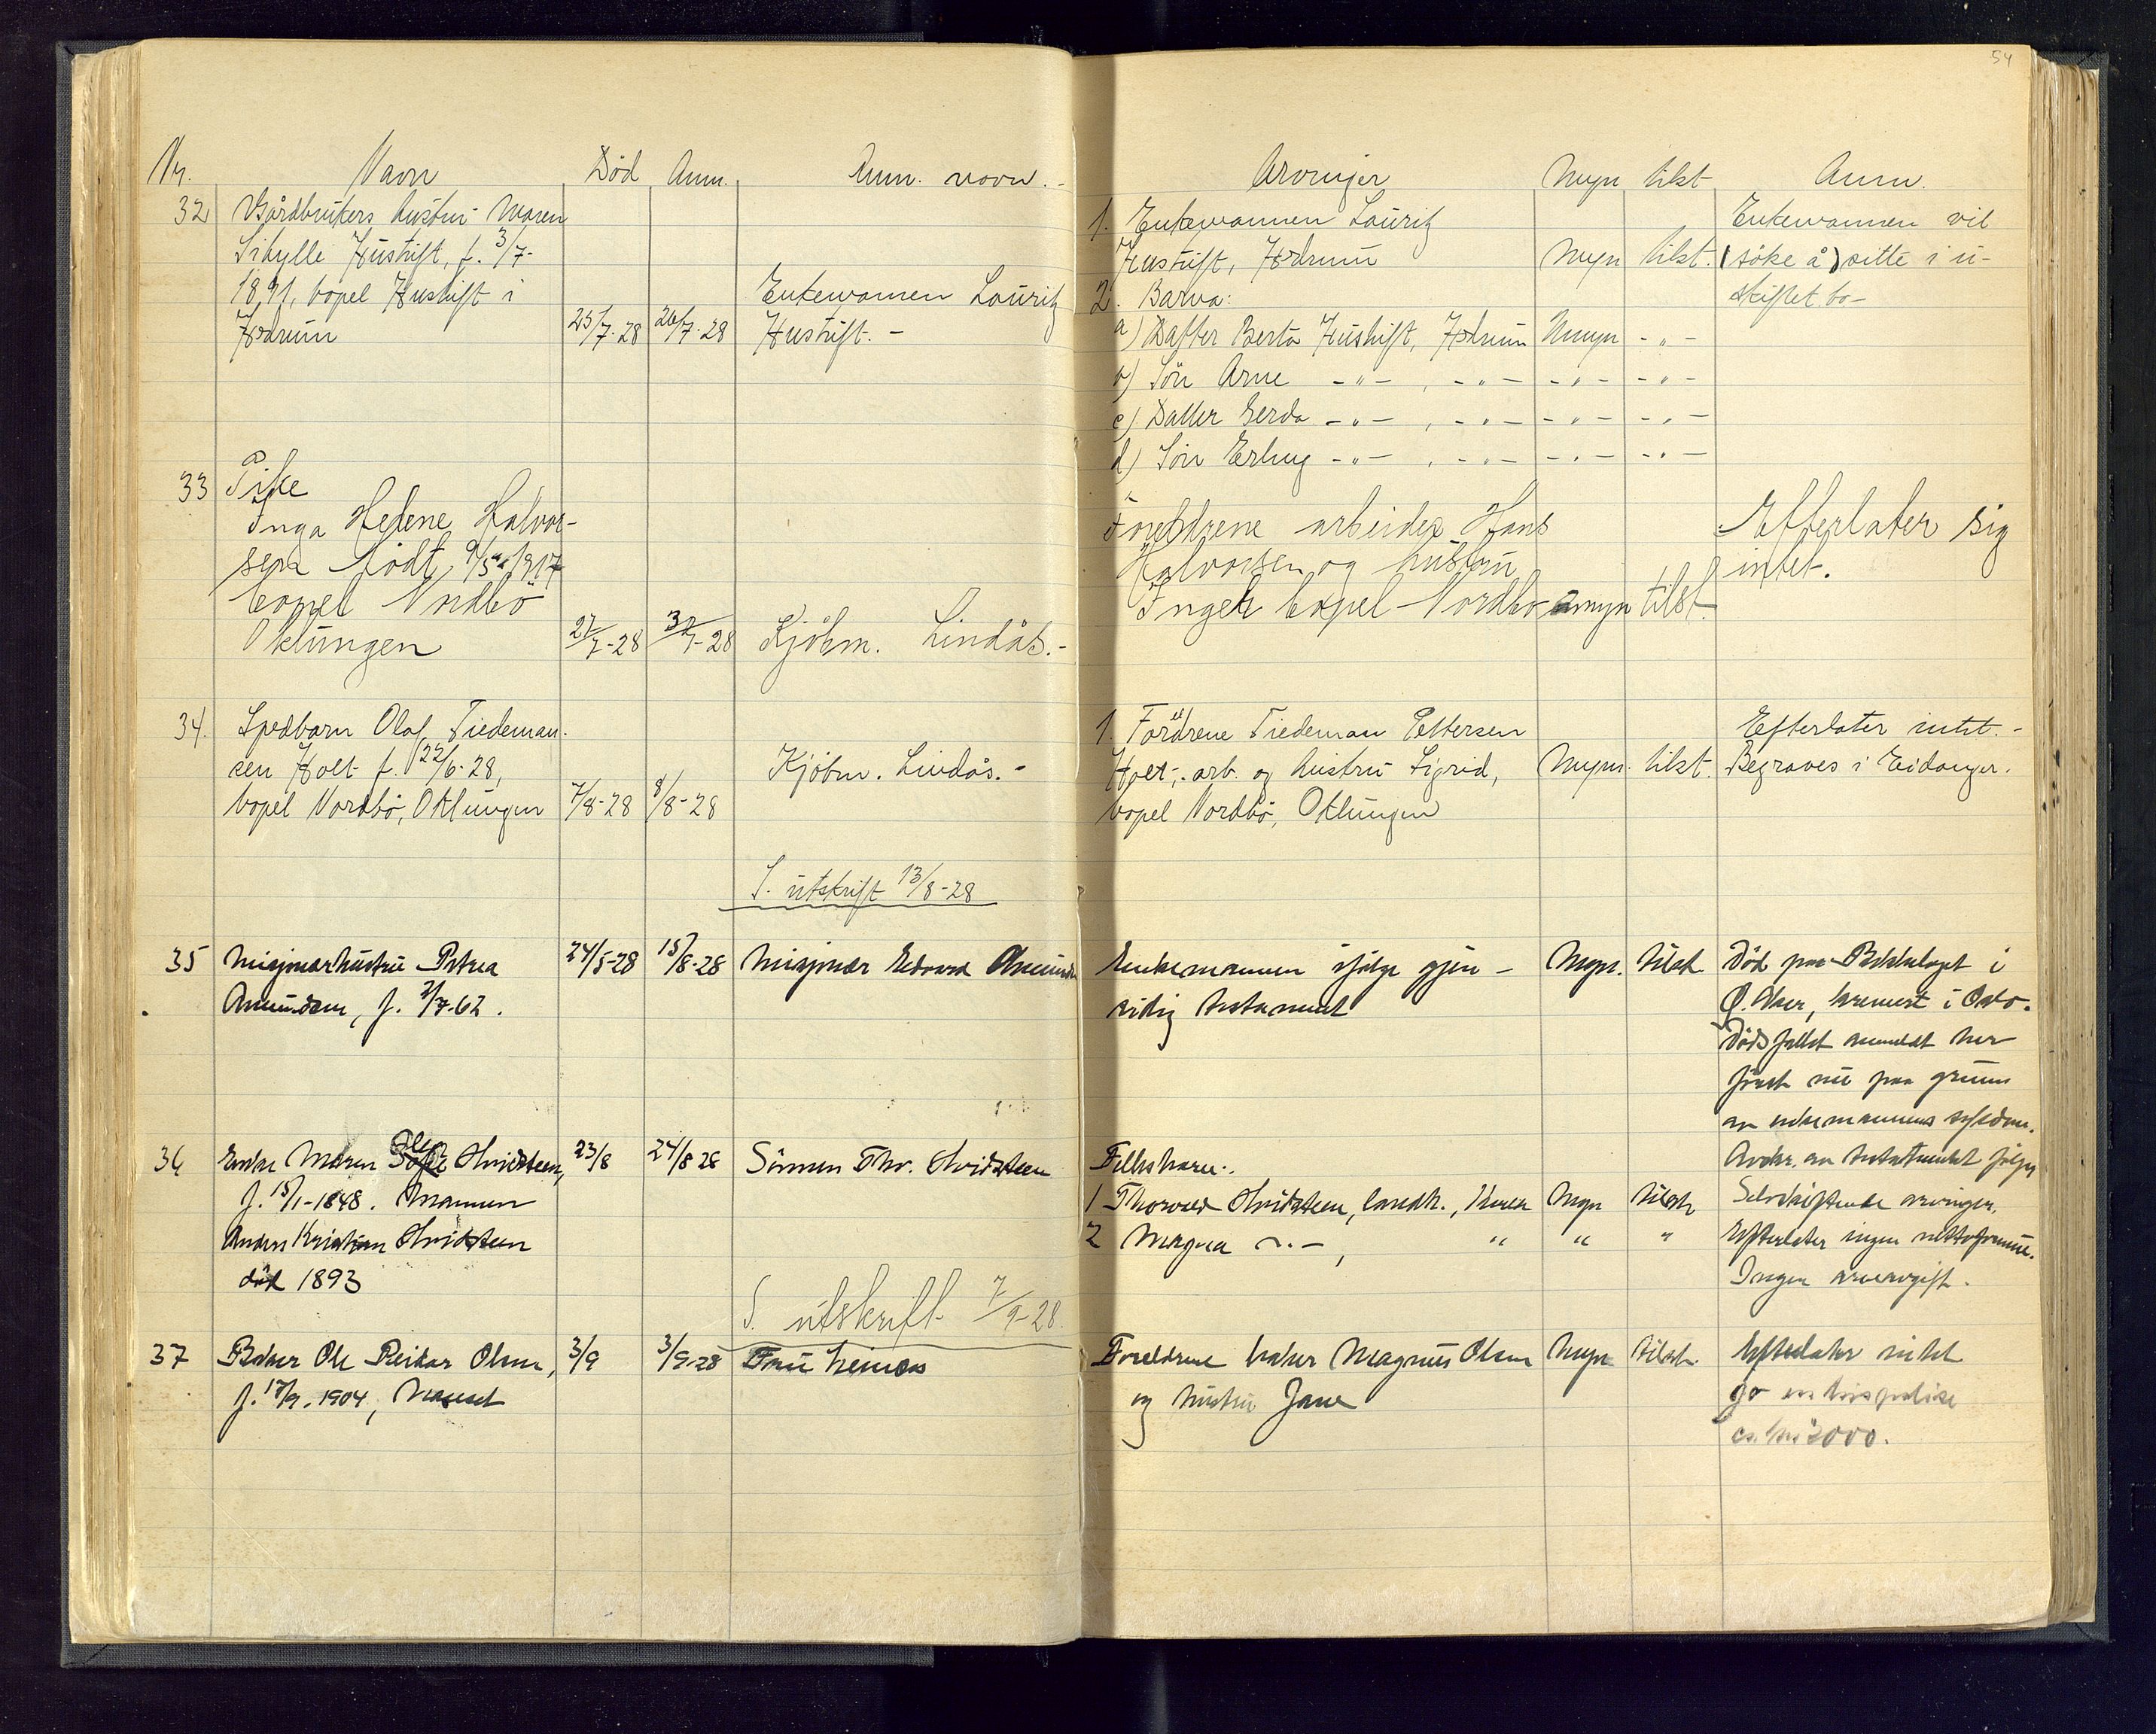 54
Nr. Navn Död Anm. Anm. navn.
Arvinger Myn tilst Anm.
32 Gårdbrukers hustru Maren
Sibylle Hustvft, f. 3/7-
1891, bopel Hustvft i
Hedrum 25/7-28 26/7-28
Enkemannen Lauritz
Hustvft. -
1. Enkemannen Lauritz
Hustvft, Hedrum Myn tilst.
2. Barna:
a) Datter Berta Hustvft, Hedrum Umyn - " -
b) Sön Arne - " - , - " - - " - - " -
c) Datter Gerda - " - , - " - - " - - " -
d) Sön Erling - " - , - " - - " - - " -
Enkemannen vil
(söke å) sitte i u-
skiftet bo -
33 Pike
Inga Helene Halvor-
sen födt 9/5 1917
bopel Nordbö
Oklungen 27/7-28 30/7-28 Kjöbm. Lindås.-
Foreldrene arbeider Hans
Halvorsen og hustru
Inger bopel Nordbö myn tilst.
Efterlater sig
intet.
34. Spedbarn Olaf Tiedeman-
sen Holt f. 22/6-28,
bopel Nordbö, Oklungen 7/8-28 8/8-28
Kjöbm. Lindås. -
1. Foreldrene Tiedeman Pettersen
Holt, arb. og hustru Sigrid, Myn. tilst.
bopel Nordbö, Oklungen
Efterlater intet. -
Begraves i Eidanger.
S. utskrift 13/8-28
35 Misjonærhustru Petrea
Amundsen, f. 2/7-62.
24/5-28 15/8-28 Misjonær Edvard Amundsen
Enkemannen ifölge gjen-
sidig testament Myn. tilst.
Död paa Bekkelaget i
Ö. Aker, kremert i Oslo.
Dödsfallet anmeldt her
först nu paa grunn
av enkemannens sykdom.
Avskr. av testamentet fölger
36 Enke Maren Hvidsteen,
f. 15/1-1848. Mannen
Anders Kristian Hvidsteen
död 1893
23/8 24/8-28 Sönnen Thv. Hvidsteen
Fellesbarn:
1 Thorvald Hvidsteen, landh., Myn tilst.
2 Magna - " - , " " "
Selvskiftende arvinger.
Efterlater ingen nettoformue.
Ingen arveavgift.
S. utskrift 7/9-28
37 Baker Ole Reidar Olsen,
f. 17/9-1904,
3/9 3/9-28 Fru
Foreldrene baker Magnus Olsen
og hustru Jane
Myn tilst.
Efterlater intet
ca. kr. 2000.